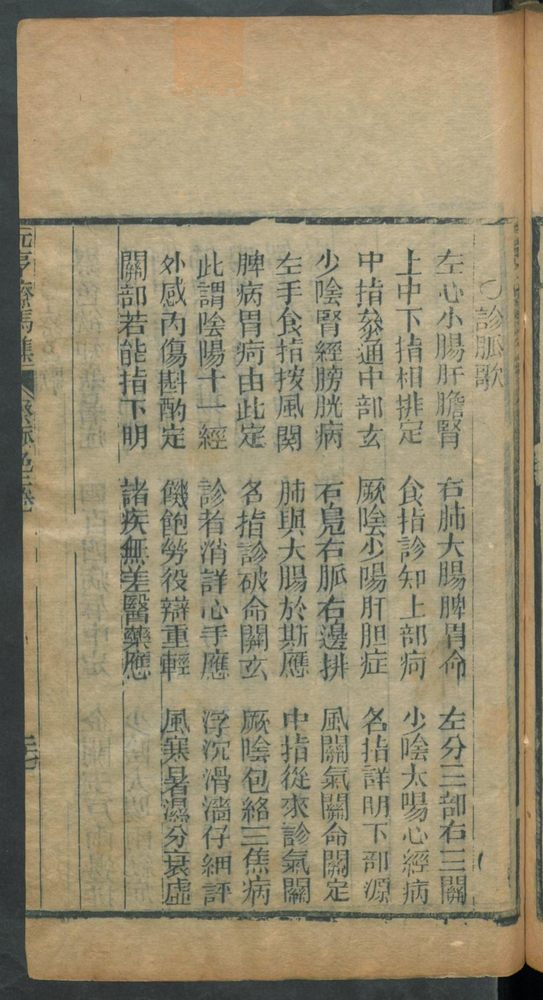 ○診脈歌
左心小腸肝膽腎　右肺大腸脾胃命　左分三部右三關
上中下指相排定　食指診知上部疴　少陰太陽心經病
中指葵通中部玄　厥陰少陽肝胆症　名指詳明下部源
少陰腎經膀胱病　右鳬右脈右邊排　風關氣關命關定
左手食指按風関　肺與大腸於斯應　中指從來診氣關
脾病胃疴由此定　名指診破命關玄　厥陰包絡三焦病
此謂陰陽十一經　診者消詳心手應　浮沉滑濇仔細評
外感內傷斟酌定　饑飽勞役辯重輕　風寒暑濕分衰虛
關部若能指下明　諸疾無差醫藥應
元亨療馬集　脉色 卷